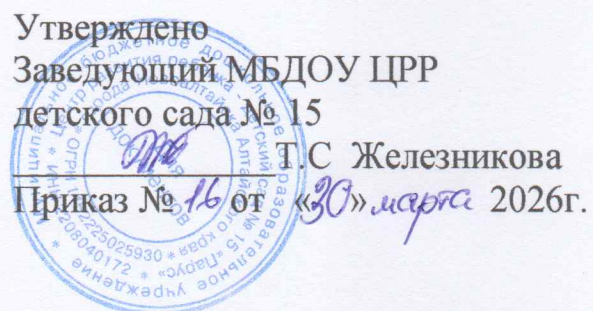 Утверждено
Заведующий МБДОУ ЦРР
детского сада № 15
Т.С Железникова
Приказ № 16 от «30» марта 2026г.